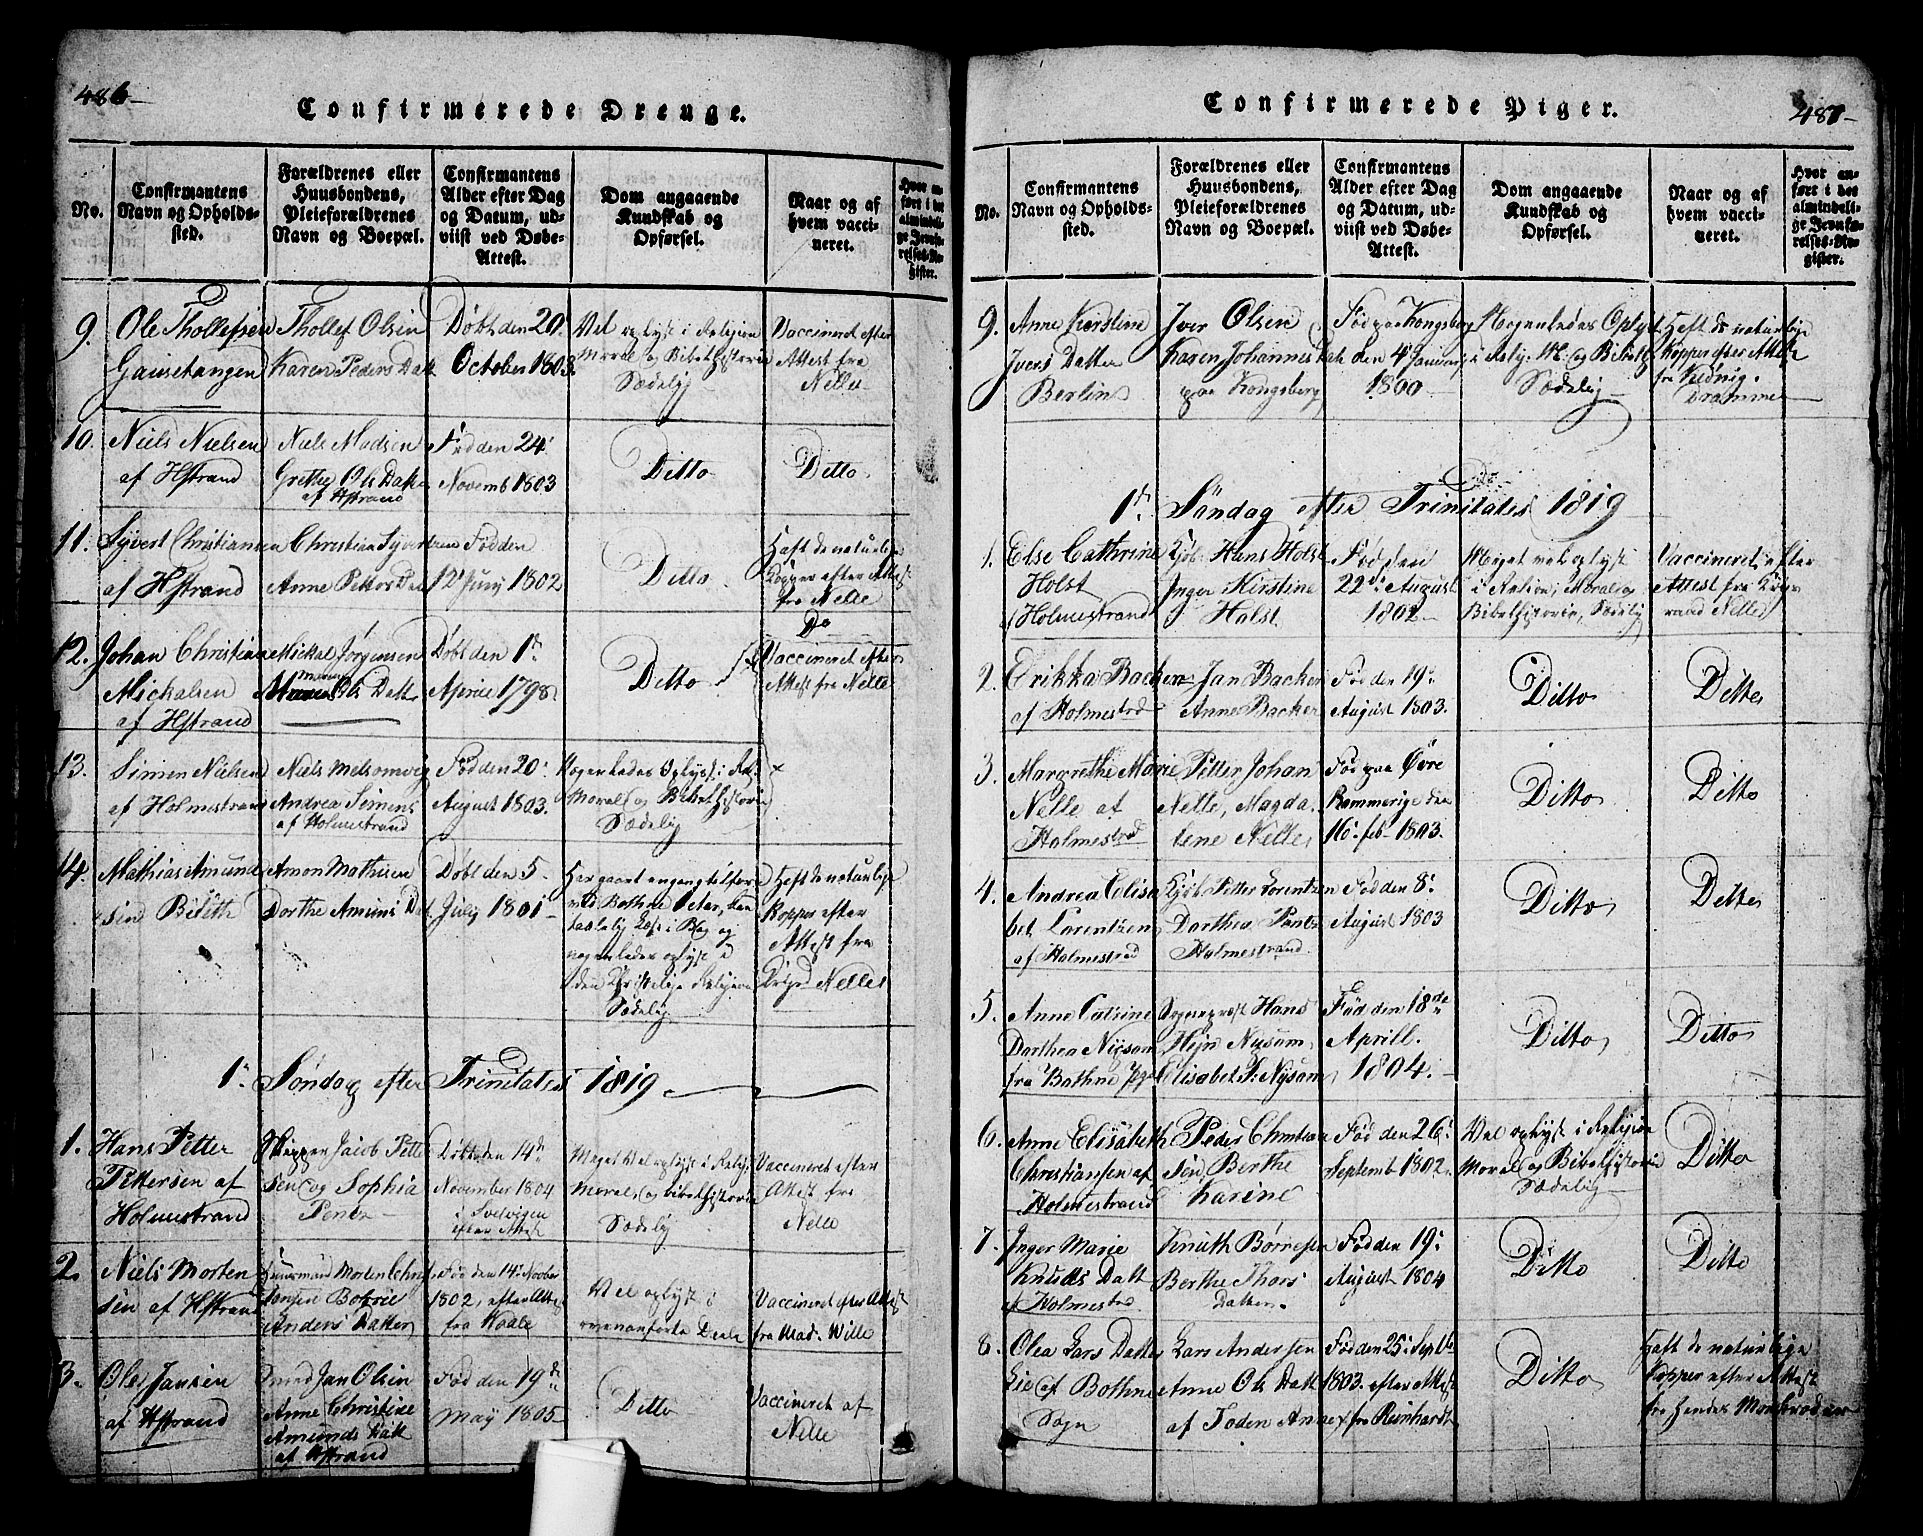 486
Confirmerede Drenge.
No.
Confirmantens
Navn og Opholds-
sted.
Forældrenes eller
Huusbondens,
Pleieforældrenes
Navn og Boepæl.
Confirmantens
Alder efter Dag
og Datum, ud-
viist ved Døbe-
Attest.
Dom angaaende
Kundskab og
Opførsel.
Naar og af
hvem vacci-
neret.
Hvor an-
ført i det
almindeli-
ge Jevnfø-
relses-Re-
gister.
9. Ole Thollefsen
Gausetangen
Thollef Olsen
Karen Peders Datt
Døbt den 20.
October 1803.
Vel oplyst i Religion
Moral og Bibelhistorie
Sædelig
Vaccineret efter
Attest fra
Nelle
10. Niels Nielsen
af Hstrand
Niels Madsen
Grethe Ols Datter
af Hstrand
Fød den 24.
Novemb 1803
Ditto
Ditto
11. Syvert Christiansen
af Hstrand
Christian Syvertsen
Anne Petters Dat
Fød den
12 Juny 1802
Ditto
Haft de naturlige
Kopper efter Attest
fra Nelle
Do
12. Johan Christian
Mickalsen
af Hstrand
Mickal Jørgensen
Maren Ols Datt
Døbt den 1ste
Aprill 1798.
Ditto
Vaccineret efter
Attest fra Nelle
13. Simen Nielsen
af Holmestrand
Niels Melsomvig
Andrea Simens
af Holmestrand
Fød den 20.
August 1803.
Nogenledes Oplyst i Rel.
Moral og Bibelhistorie
Sædelig
14. Mathias Amund
sen Bilith
Amon Mathisen
Dorthe Amuns Dat
Døbt den 5.
July 1801
Har gaaet engang tilforn
nogenledes oplyst i
den Christelige Religion
Sædelig
Haft de naturlige
Kopper efter
Attest fra
Nelle
1. Søndag efter Trinitatis 1819
1. Hans Petter
Pettersen af
Holmestrand
Skipper Jacob Petter
sen og Sophia
Døbt den 14de
November 1804
i Svelvigen
efter Attest
Meget Vel oplyst i Relig.
Moral, og bibelhistorie
Sædelig
Vaccineret efter
Attest fra
Nelle
2. Niels Morten
sen af Hstrand
Huusmand Morten Chri
Anders Datter
Fød den 14. Novbr
1802, efter Attest
fra
Vel oplyst i
ovenanførte Deele
Vaccineret efter Attest
fra Mad. Wille
3. Ole Jansen
af Hstrand
Jan Olsen
Anne Christine
Amunds Datt
af Hstrand
Fød den 19de
May 1805
Ditto
Vaccineret af
Nelle
487
Confirmerede Piger.
No.
Confirmantens
Navn og Opholds-
sted.
Forældrenes eller
Huusbondens,
Pleieforældrenes
Navn og Boepæl.
Confirmantens
Alder efter Dag
og Datum, ud-
viist ved Døbe-
Attest.
Dom angaaende
Kundskab og
Opførsel.
Naar og af
hvem vacci-
neret.
Hvor an-
ført i det
almindeli-
ge Jevnfø-
relses-Re-
gister.
9. Anne Kirstine
Ivers Datter
Berlin
Iver Olsen
Karen Johannes Dat
paa Kongsberg
Fød paa Kongsberg
den 4 January
1800
Nogenledes Oplyst
i Relig. M: og Bibelh.
Sædelig
Haft de naturlige
Kopper efter Attest
fra
Drammen
1ste Søndag efter Trinitatis 1819
1. Else Cathrine
Holst
Holmestrand
Kjøb. Hans Holst
Inger Kirstine
Holst
Fød den
22de August
1802
Meget vel oplyst
i Religion, Moral og
Bibelhistorie, Sædelig
Vaccineret, efter
Attest fra
Nelle
2. Erikka Backer
af Holmestrd
Jan Backer
Anne Backer
Fød den 19.
August 1803.
Ditto
Ditto
3. Margrethe Marie
Nelle af
Holmestrd
Petter Johan
Nelle, Magda
lene Nelle
Fød paa Øvre
Rammerige den
16. feb 1803.
Ditto
Ditto
4. Andrea Elisa
bet Lorentzen
af Holmestrd
Kjøb. Petter Lorentzen
Dorthea
Holmestrand
Fød den 8.
August 1803
Ditto
Ditto
5. Anne Catrine
Dorthea Nysom
fra Bothne
Sognepræst Hans
Hejn Nysom,
Elisabet S: Nysom
Fød den 18de
Aprill.
1804.
Ditto
Ditto
6. Anne Elisabeth
Christiansen af
Holmestrand
Peder Christian
sen, Berthe
Karine
Fød den 26.
Septemb 1802.
Vel oplyst i Religion
Moral og Bibelhistorie
Sædelig
Ditto
7. Inger Marie
Knuds Datt
af Holmestrd
Knuth Børresen
Berthe Thors
Datter.
Fød den 19.
August 1804
Ditto
Ditto
8. Olea Lars Datter
Lie af Bothne
Sogn
Lars Andersen
Anne Ols Datt
af Foden Annex
Fød den 25. Septb
1803. efter Attest
fra Reinhardt
Ditto
Haft de naturlige
Kopper efter Attest
fra